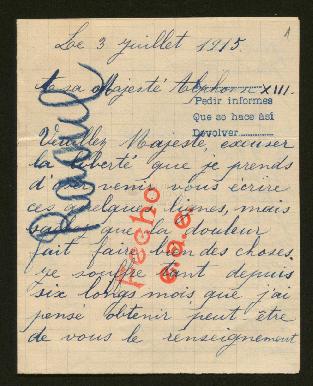 1
Le 3 juillet 1915.
A sa Majesté Alphonse XIII.
Pedir informes
Que se hace así
Devolver
Veuillez Majesté, excuser
la liberté que je prends
d'oser venir vous écrire
ces quelques lignes, mais
que la douleur
fait faire bien des choses.
Je souffre tant depuis
six longs mois que j'ai
pensé obtenir peut être
de vous le renseignement
Hecho